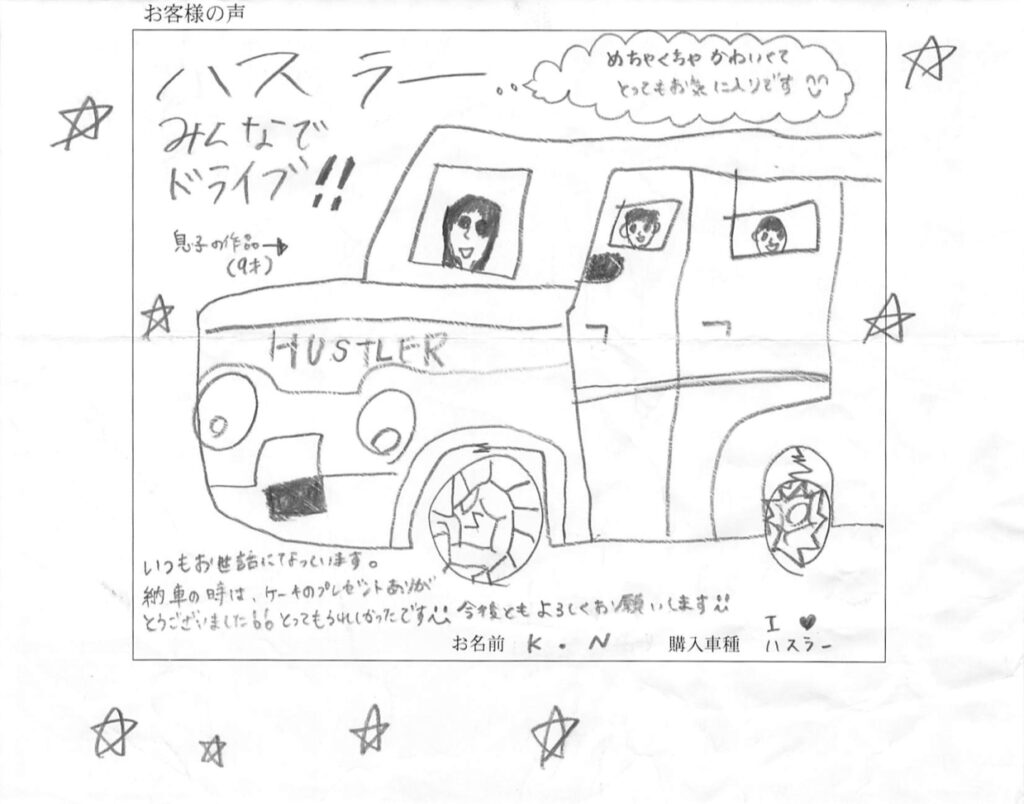 お客様の声
ハスラー
めちゃくちゃ かわいくて
とってもお気に入りです
みんなで
ドライブ!!
息子の作品→
(9才)
HUSTLER
いつもお世話になっています。
納車の時は、ケーキのプレゼントありが
とうございました!! とってもうれしかったです!! 今後ともよろしくお願いします!!
お名前 K・N 購入車種 I ♥
ハスラー